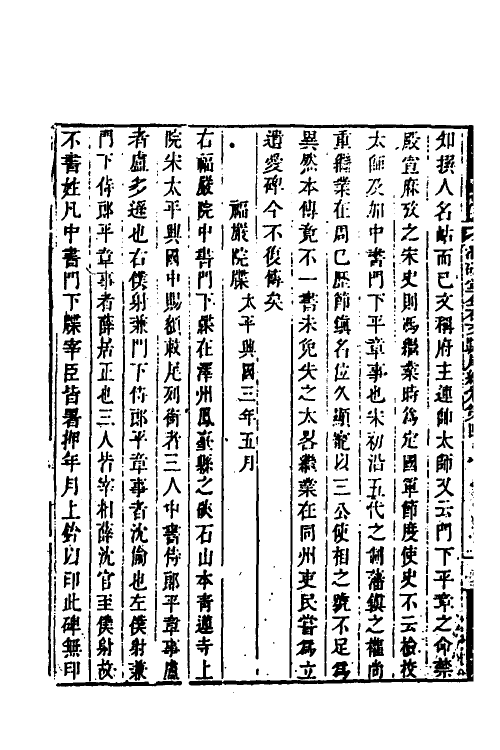 如撰人名帖而已文稱府主連帥太師又云門下平章之命禁
殿宣麻攷之宋史則馮繼業時爲定國軍節度使史不云檢校
太師及加中書門下平章事也宋初沿五代之制藩鎭之權尚
重繼業在周已歷節鎭名位久顯寵以三公使相之號不足爲
異然本傳竟不一書未免失之太畧繼業在同州吏民嘗爲立
遺愛碑今不復傳矣
福嚴院牒 太平興國三年五月
右福嚴院中書門下牒在澤州鳳臺縣之硤石山本靑蓮寺上
院宋太平興國中賜額敕尾列銜者三人中書侍郎平章事盧
者盧多遜也右僕射兼門下侍郎平章事者沈倫也左僕射兼
門下侍郎平章事者薛居正也三人皆宰相薛沈官至僕射故
不書姓凡中書門下牒宰臣皆署押年月上鈐以印此碑無印